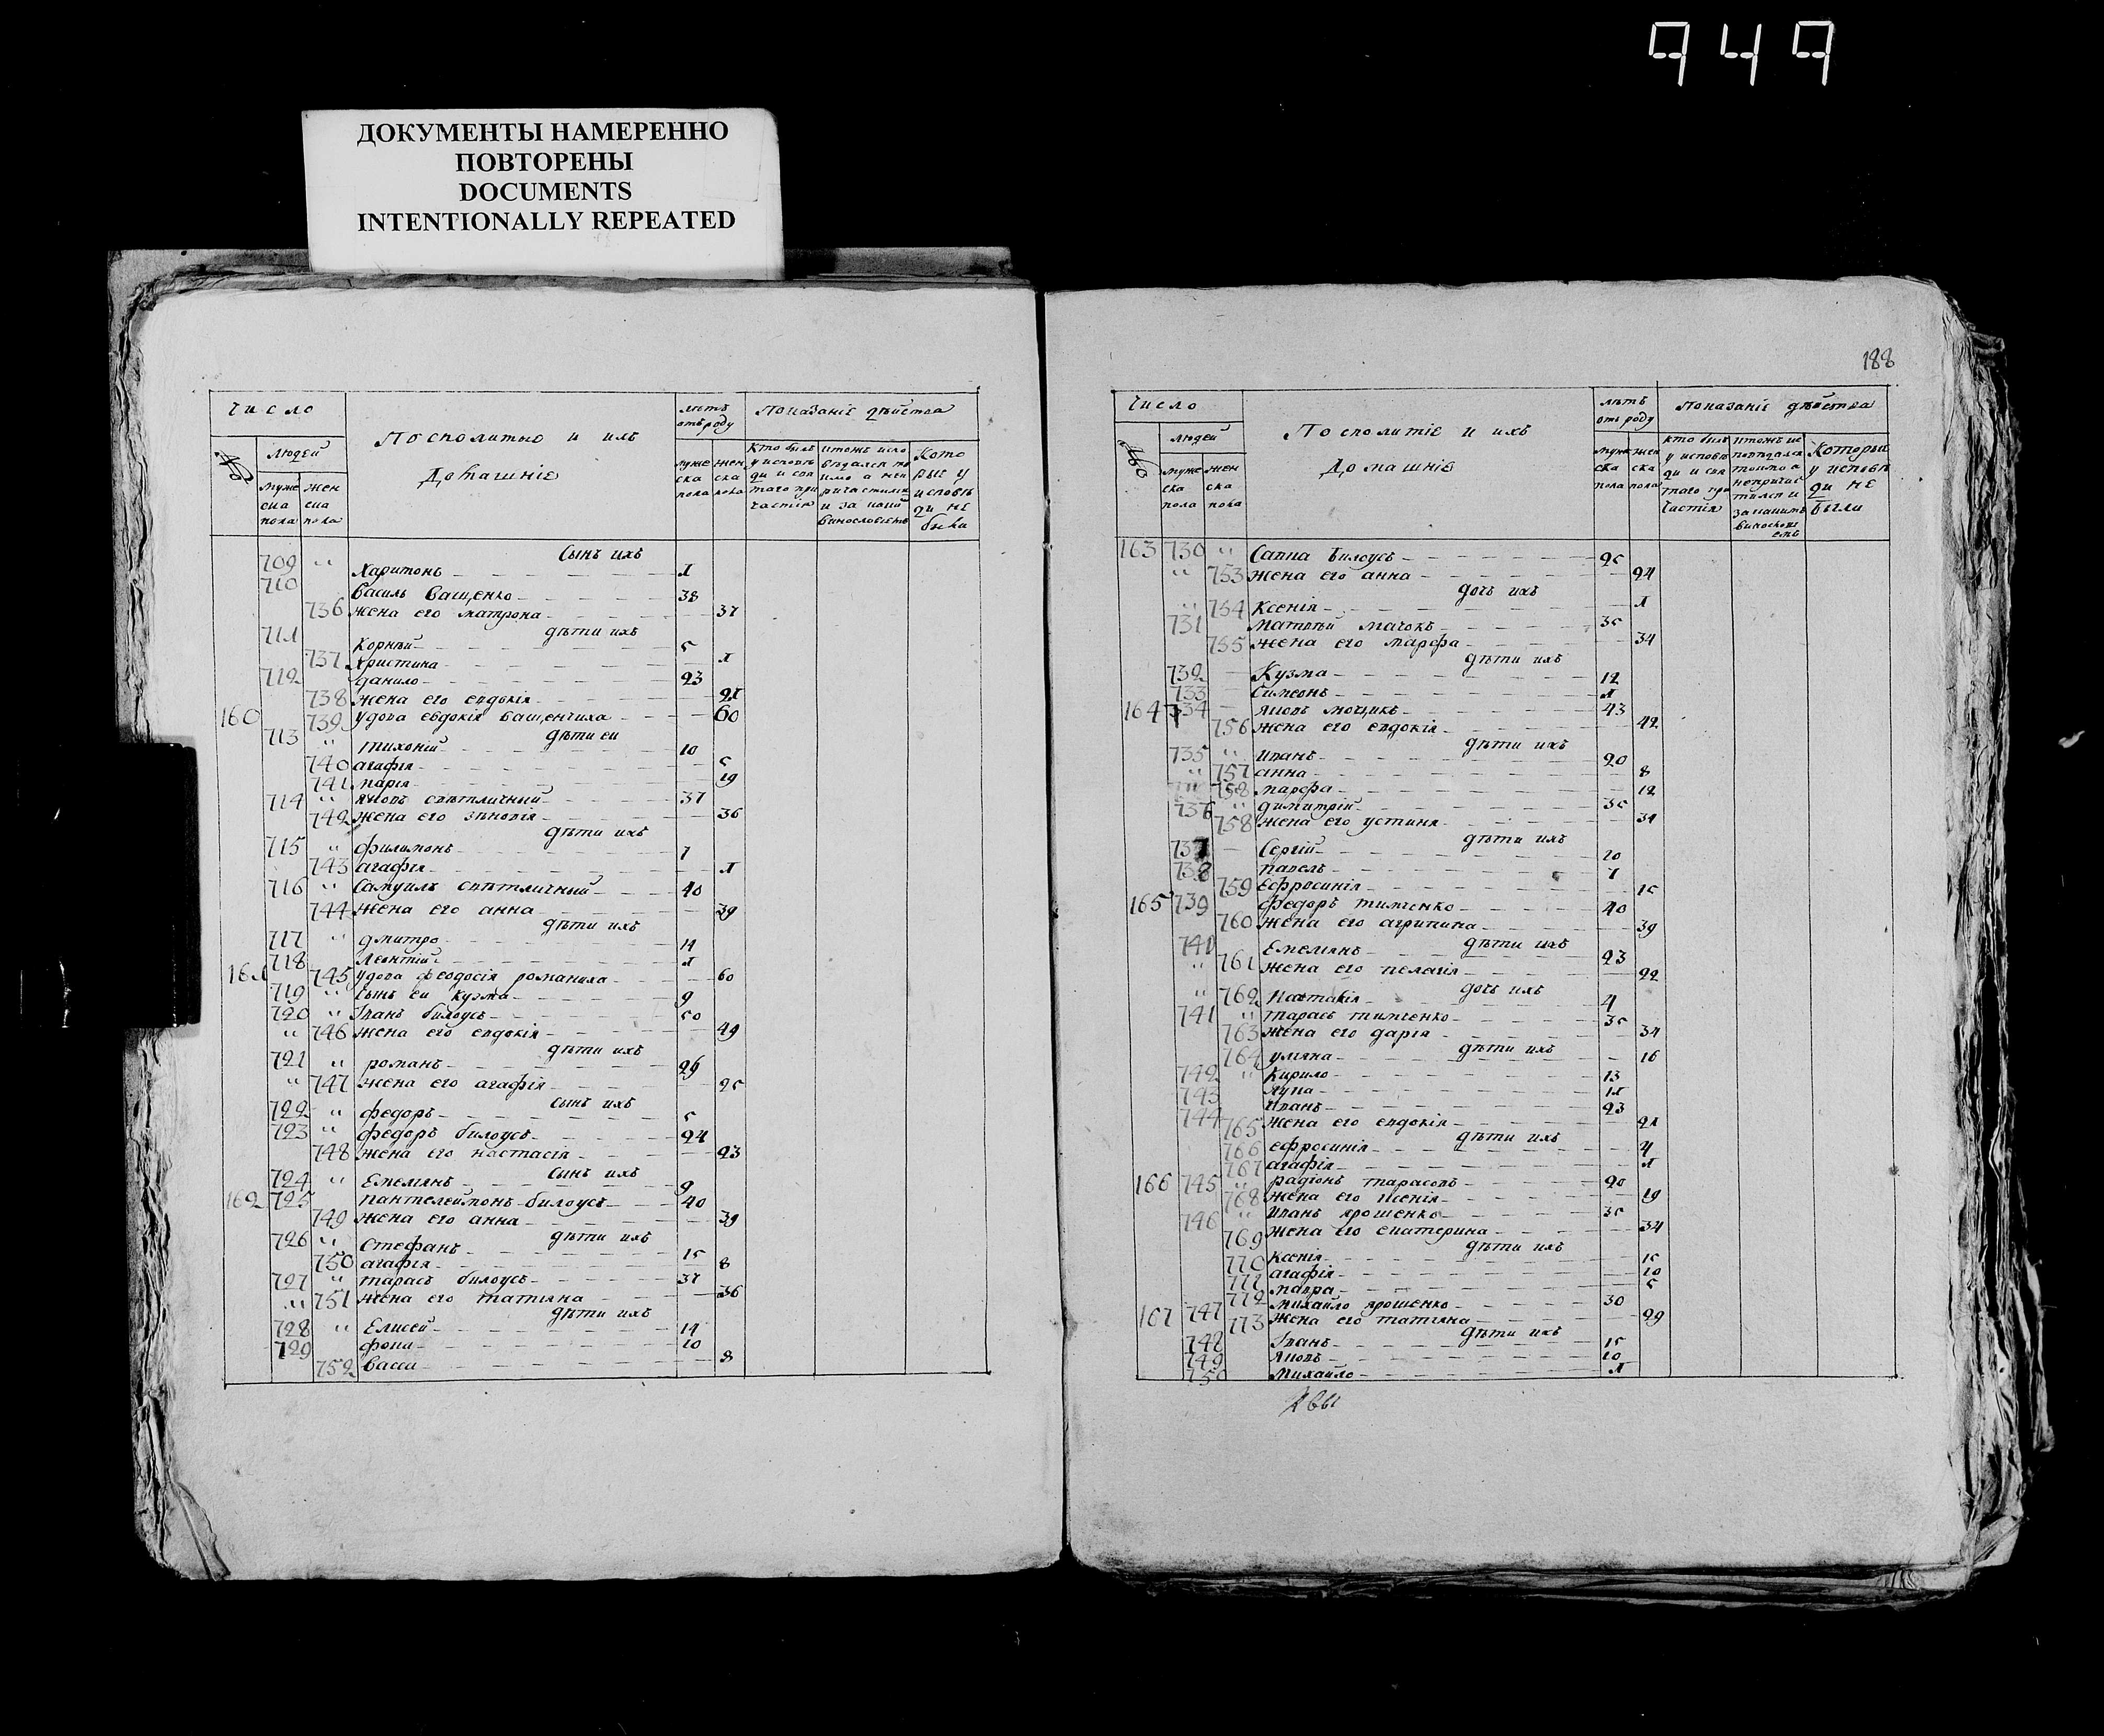 949
ДОКУМЕНТЫ НАМЕРЕННО
ПОВТОРЕНЫ
DOCUMENTS
INTENTIONALLY REPEATED
Число
Посполитыо и ихъ
Домашніе
лѣтъ отъ роду
Показаніе дѣйства
№
людей
муже ска пола
жен ска пола
муже ска пола
жен ска пола
кто былъ у исповѣди и свя таго при частія
Кото рые у исповѣ ди не были
Сынъ ихъ
709 " Харитонъ 1
710 Василь Ващенко 38
736 жена его матрона 37
дѣти ихъ
711 Корнѣй 5
737 Христина 1
712 Данило 23
738 жена его евдокія 21
160 739 удова евдокія ващенчиха 60
дѣти еи
713 " тихоній 10
740 агафія 5
741 марія 19
714 " яковъ свѣтличный 37
742 жена его зѣновія 36
дѣти ихъ
715 " филимонъ 7
743 агафія 1
716 " Самуилъ свѣтличный 40
744 жена его анна 39
дѣти ихъ
717 " дмитро 14
718 Леонтій 1
161 745 удова феодосія романиха 60
719 " сынъ еи кузма 9
720 " Іванъ билоусъ 50
" 746 жена его евдокія 49
дѣти ихъ
721 " романъ 26
" 747 жена его агафія 25
Сынъ ихъ
722 " федоръ 5
723 " федоръ билоусъ 24
748 жена его настасія 23
Сынъ ихъ
724 " Емелянъ 9
162 725 пантелеймонъ билоусъ 40
749 жена его анна 39
дѣти ихъ
726 " Стефанъ 15
750 агафія 8
727 " тарасъ билоусъ 37
" 751 жена его татияна 36
дѣти ихъ
728 " Елисей 14
729 фока 10
752 Васса 8
188
Число
Посполитіе и ихъ
Домашніе
лѣтъ отъ роду
Показаніе дѣйства
№
людей
муже ска пола
жен ска пола
муже ска пола
жен ска пола
кто былъ у исповѣ ди и свя таго при частія
Которые у исповѣ ди не были
163 730 " Савка Билоусъ 25
" 753 жена его анна 24
дочь ихъ
" 754 Ксенія 1
731 матвѣй мачокъ 35
755 жена его марфа 34
дѣти ихъ
732 Кузма 12
733 Симеонъ 1
164 734 яковъ моцикъ 43
756 жена его евдокія 42
дѣти ихъ
735 " Иванъ 20
" 757 анна 8
758 марфа 12
736 " димитрій 35
758 жена его устина 34
дѣти ихъ
737 Сергій 10
738 павелъ 7
759 Ефросинія 15
165 739 федоръ тимченко 40
760 жена его агрипина 39
дѣти ихъ
741 Емелянъ 23
" 761 жена его пелагія 22
дочь ихъ
" 762 Настасія 4
741 " тарасъ тимченко 35
763 жена его дарія 34
дѣти ихъ
764 уляна 16
742 " Кирило 13
743 лука 11
744 Иванъ 23
765 жена его евдокія 21
дѣти ихъ
766 ефросинія 4
767 агафія 1
166 745 " радіонъ тарасовъ 20
768 жена его ксенія 19
746 " Иванъ ярошенко 35
769 жена его екатерина 34
дѣти ихъ
770 Ксенія 15
771 агафія 10
772 мавра 5
167 747 михайло ярошенко 30
773 жена его татияна 29
дѣти ихъ
748 Іванъ 15
749 яковъ 10
750 михайло 1